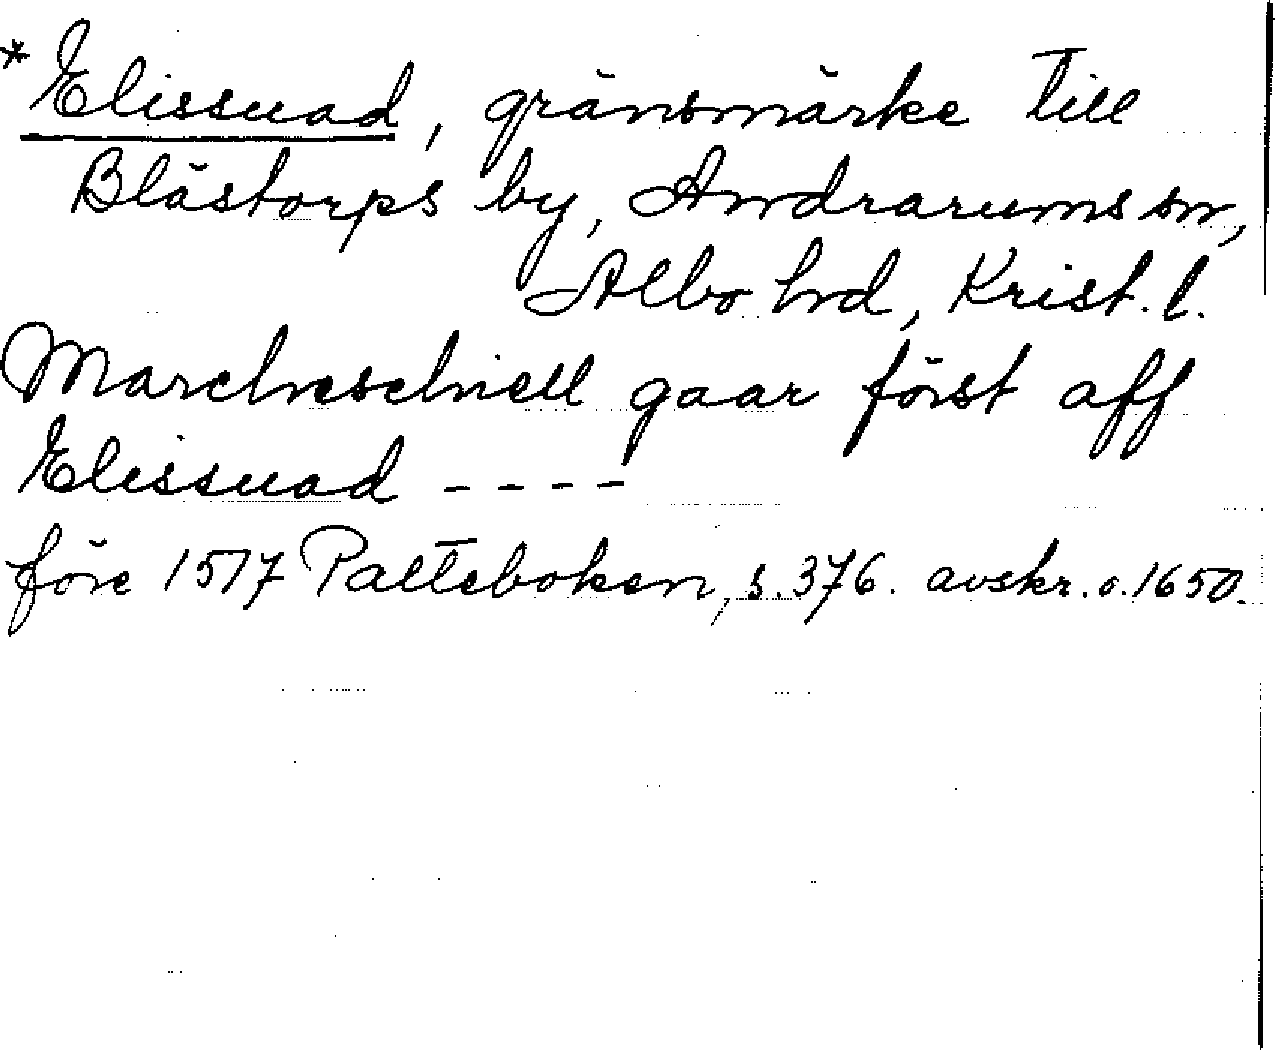 *Elissuad, gränsmärke till
Blästorps by, Andrarums sn,
Albo hd, Krist. l.
Marcheschiell gaar först aff
Elissuad ----
före 1517 Palteboken, s. 376. avskr. o. 1650.